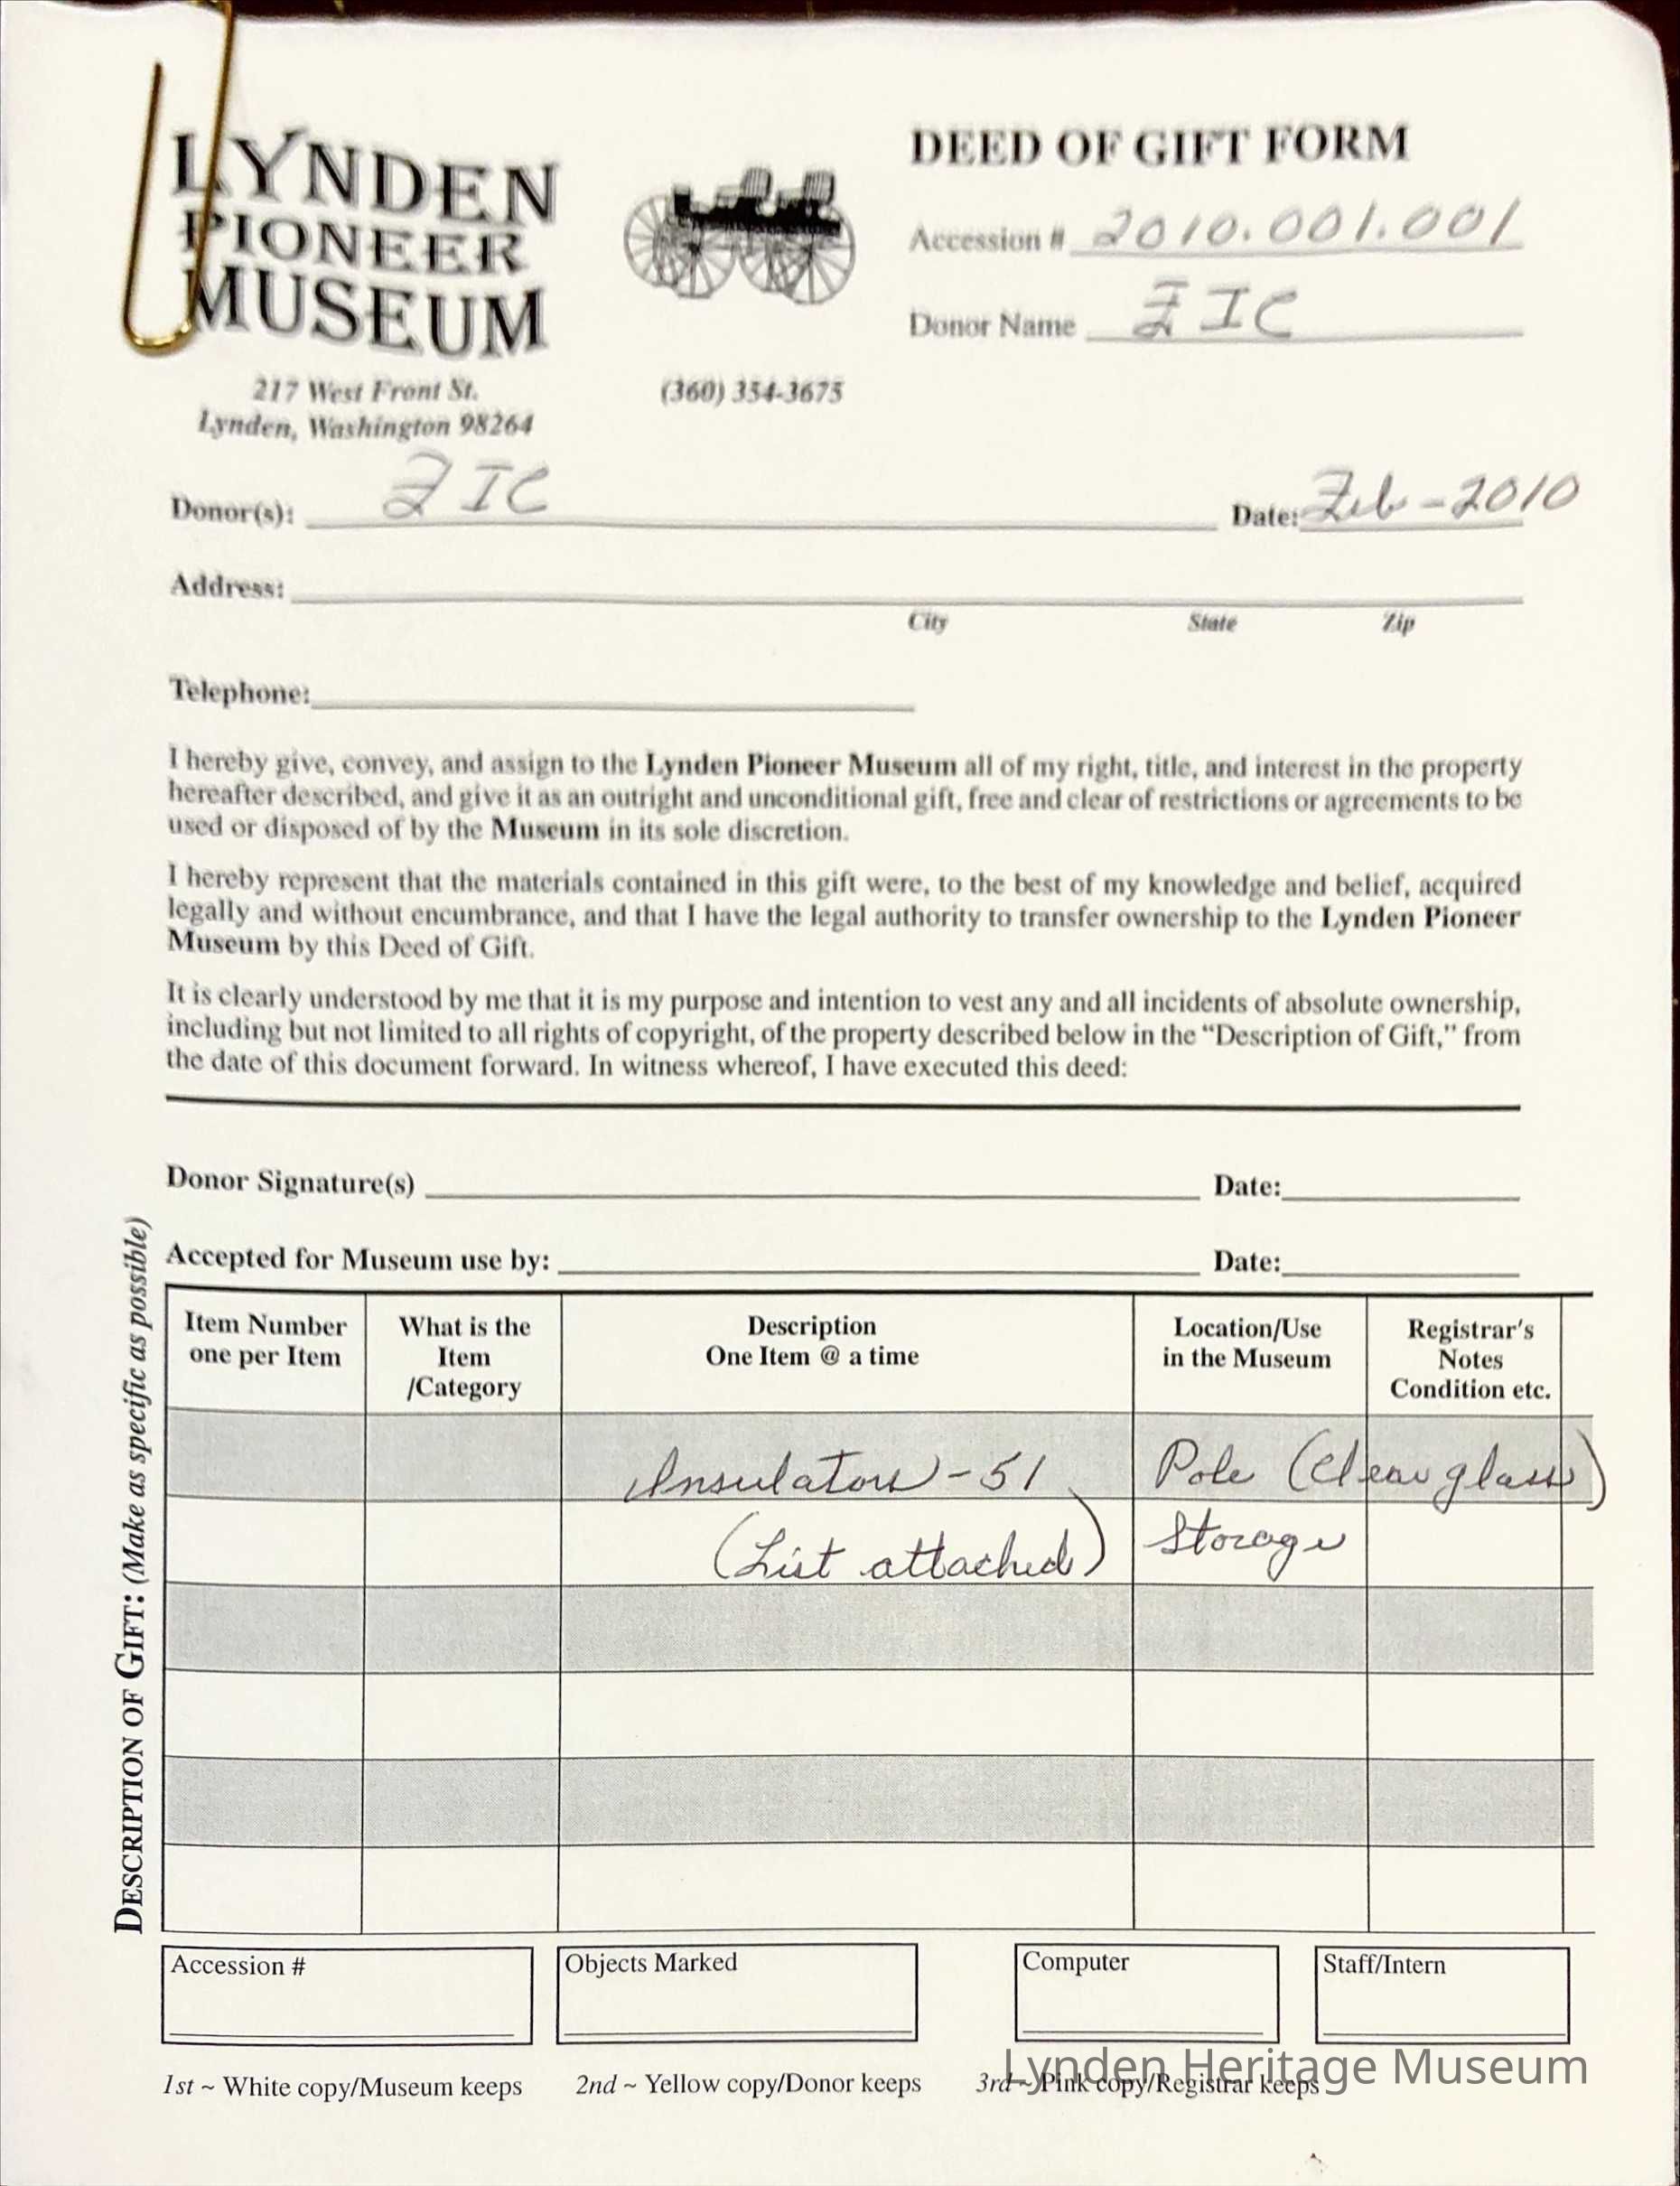 LYNDEN
PIONEER
MUSEUM
217 West Front St.
Lynden, Washington 98264
(360) 354-3675
DEED OF GIFT FORM
Accession # 2010.001.001
Donor Name FIC
Donor(s): FIC Date: Feb-2010
Address:
City State Zip
Telephone:
I hereby give, convey, and assign to the Lynden Pioneer Museum all of my right, title, and interest in the property
hereafter described, and give it as an outright and unconditional gift, free and clear of restrictions or agreements to be
used or disposed of by the Museum in its sole discretion.
I hereby represent that the materials contained in this gift were, to the best of my knowledge and belief, acquired
legally and without encumbrance, and that I have the legal authority to transfer ownership to the Lynden Pioneer
Museum by this Deed of Gift.
It is clearly understood by me that it is my purpose and intention to vest any and all incidents of absolute ownership,
including but not limited to all rights of copyright, of the property described below in the “Description of Gift,” from
the date of this document forward. In witness whereof, I have executed this deed:
Donor Signature(s) Date:
Accepted for Museum use by: Date:
DESCRIPTION OF GIFT: (Make as specific as possible)
Item Number
one per Item
What is the
Item
/Category
Description
One Item @ a time
Location/Use
in the Museum
Registrar's
Notes
Condition etc.
Insulators - 51 Pole (Clear glass)
(List attached) Storage
Accession # Objects Marked Computer Staff/Intern
1st ~ White copy/Museum keeps 2nd ~ Yellow copy/Donor keeps 3rd ~ Pink copy/Registrar keeps
Lynden Heritage Museum